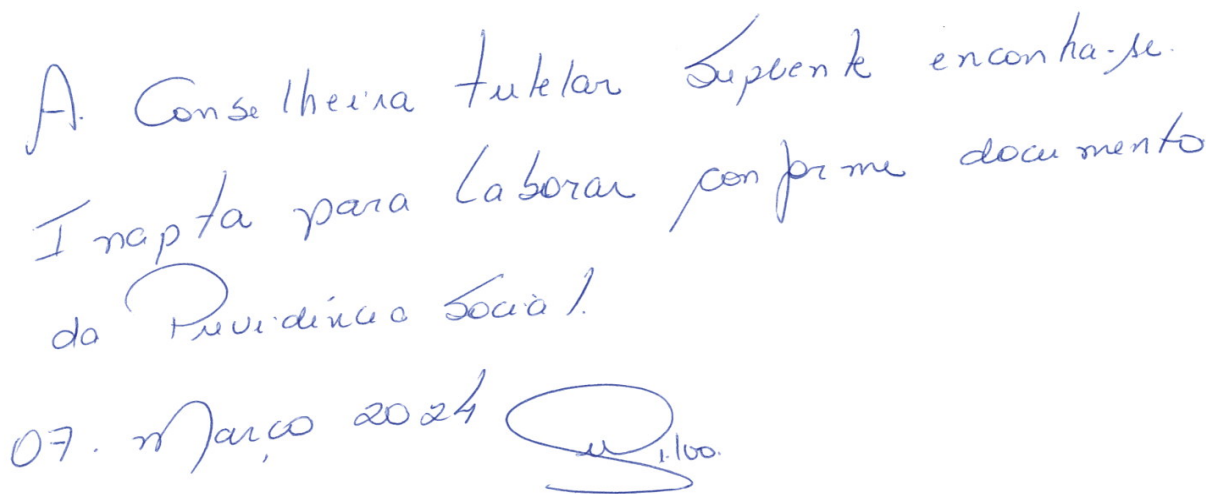 A. Conselheira tutelar Suplente enconha-se.
Inapta para Laborar conforme documento
da Previdência Social.
07. Março 2024